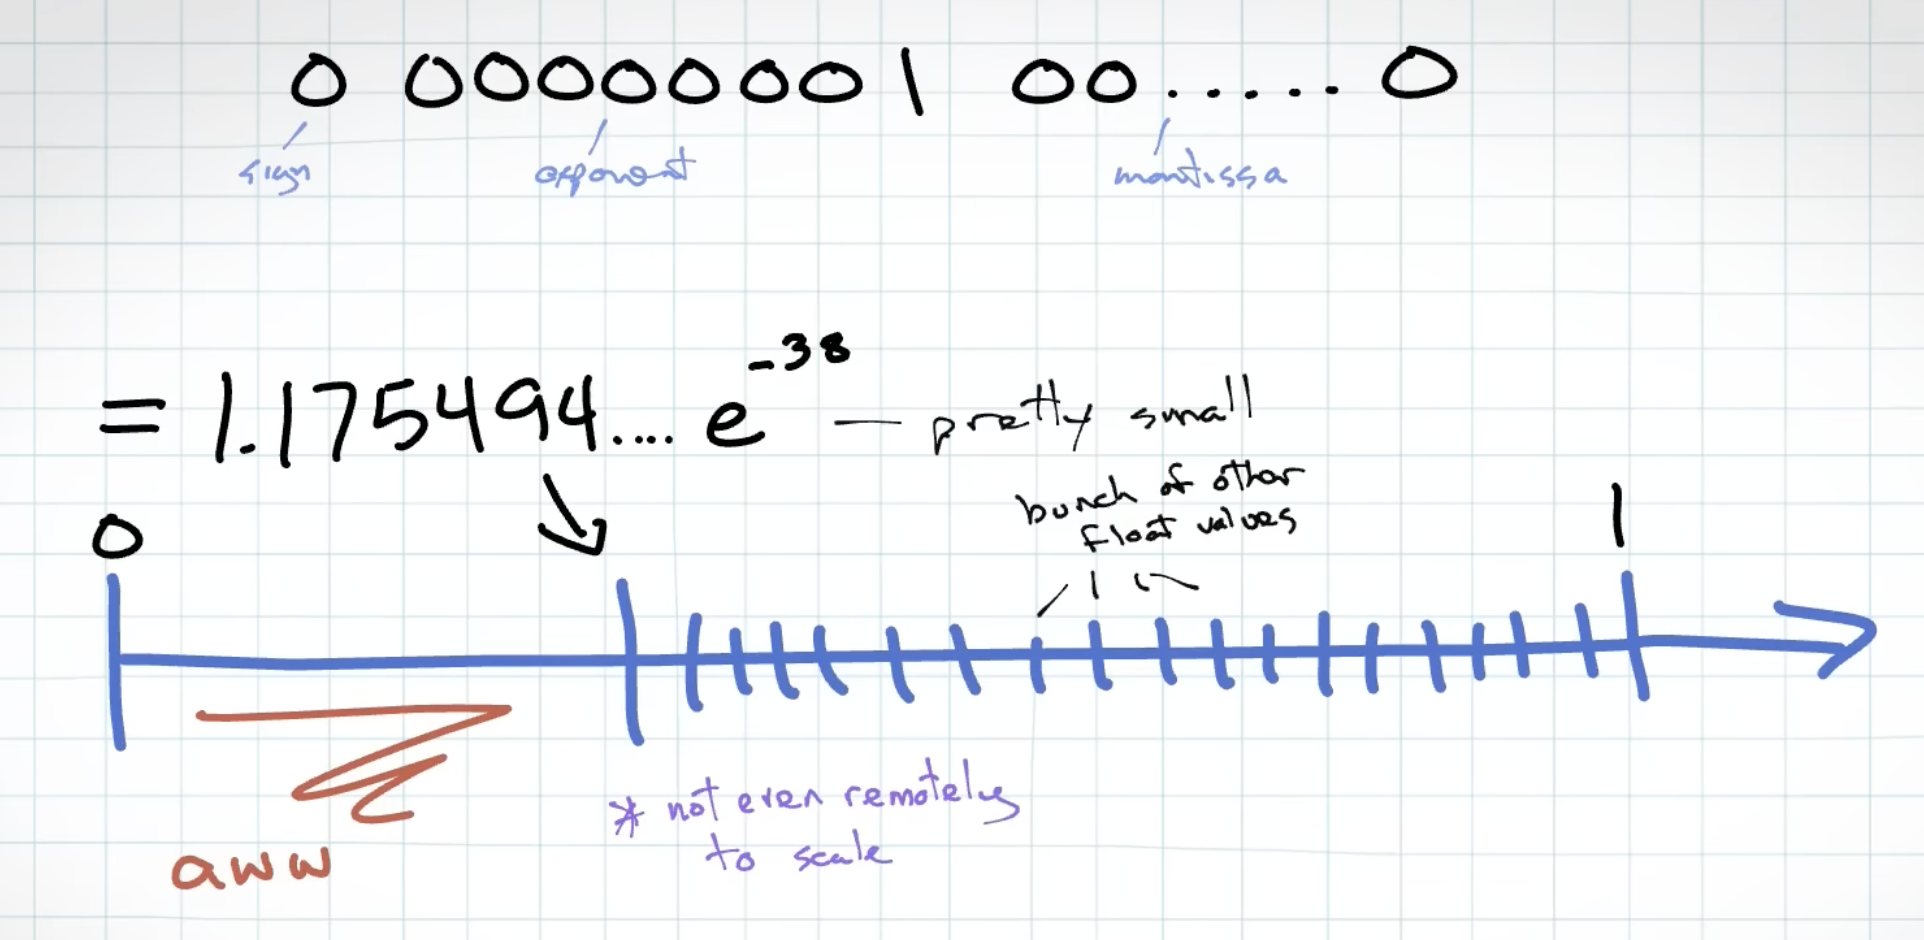 0 00000001 00.....0
sign exponent mantissa
= 1.175494.... e⁻³⁸ — pretty small
bunch of other
float values
0
1
* not even remotely
to scale
aww